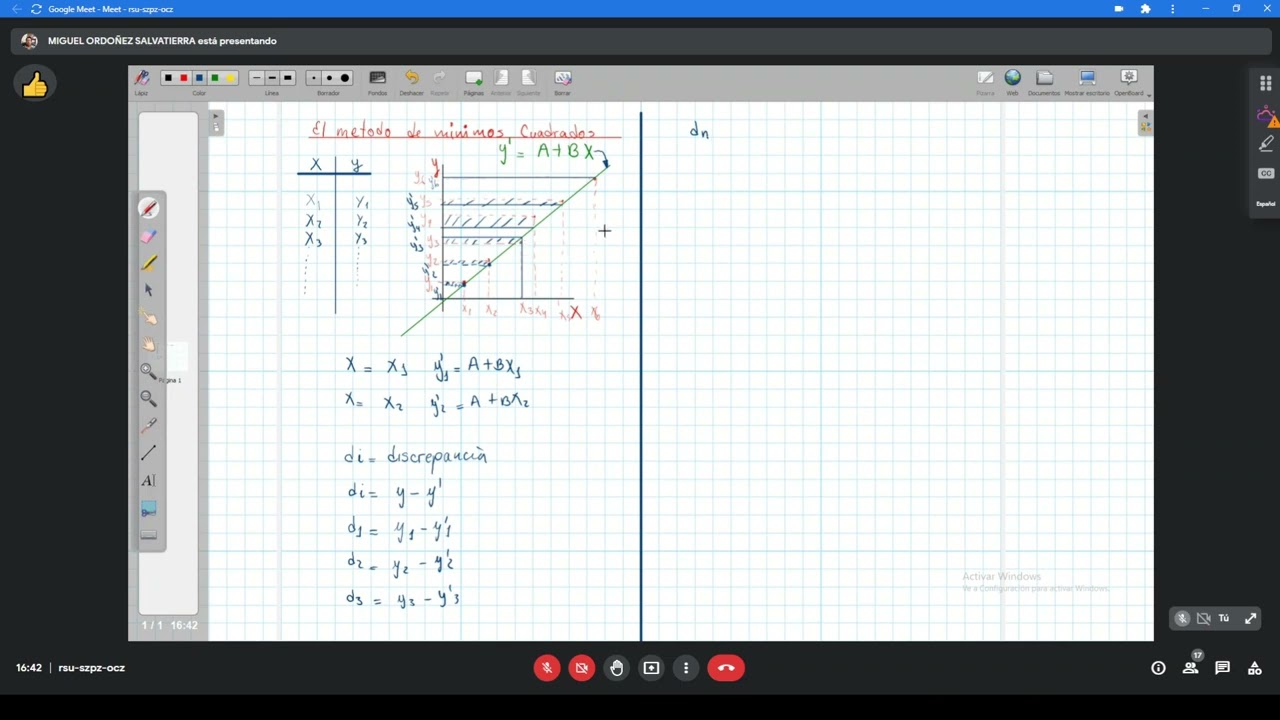 Google Meet - Meet - rsu-szpz-ocz
MIGUEL ORDOÑEZ SALVATIERRA está presentando
Lápiz Color Línea Borrador Fondos Deshacer Repetir Páginas Anterior Siguiente Borrar Pizarra Web Documentos Mostrar escritorio OpenBoard
El metodo de minimos Cuadrados
y' = A+BX
X y
X1 y1
X2 y2
X3 y3
y
y6 y'6
y'5 y5
y'4 y4
y'3 y3
y2
y'2
y1 y'1
x1 x2 x3 x4 x5 X x6
X = X1 y'1 = A+BX1
X= X2 y'2 = A +BX2
di= discrepancià
di= y - y'
d1 = y1 - y'1
d2 = y2 - y'2
d3 = y3 - y'3
dn
Página 1
1 / 1 16:42
Activar Windows
Ve a Configuración para activar Windows.
CC
Español
Tú
16:42 | rsu-szpz-ocz
17